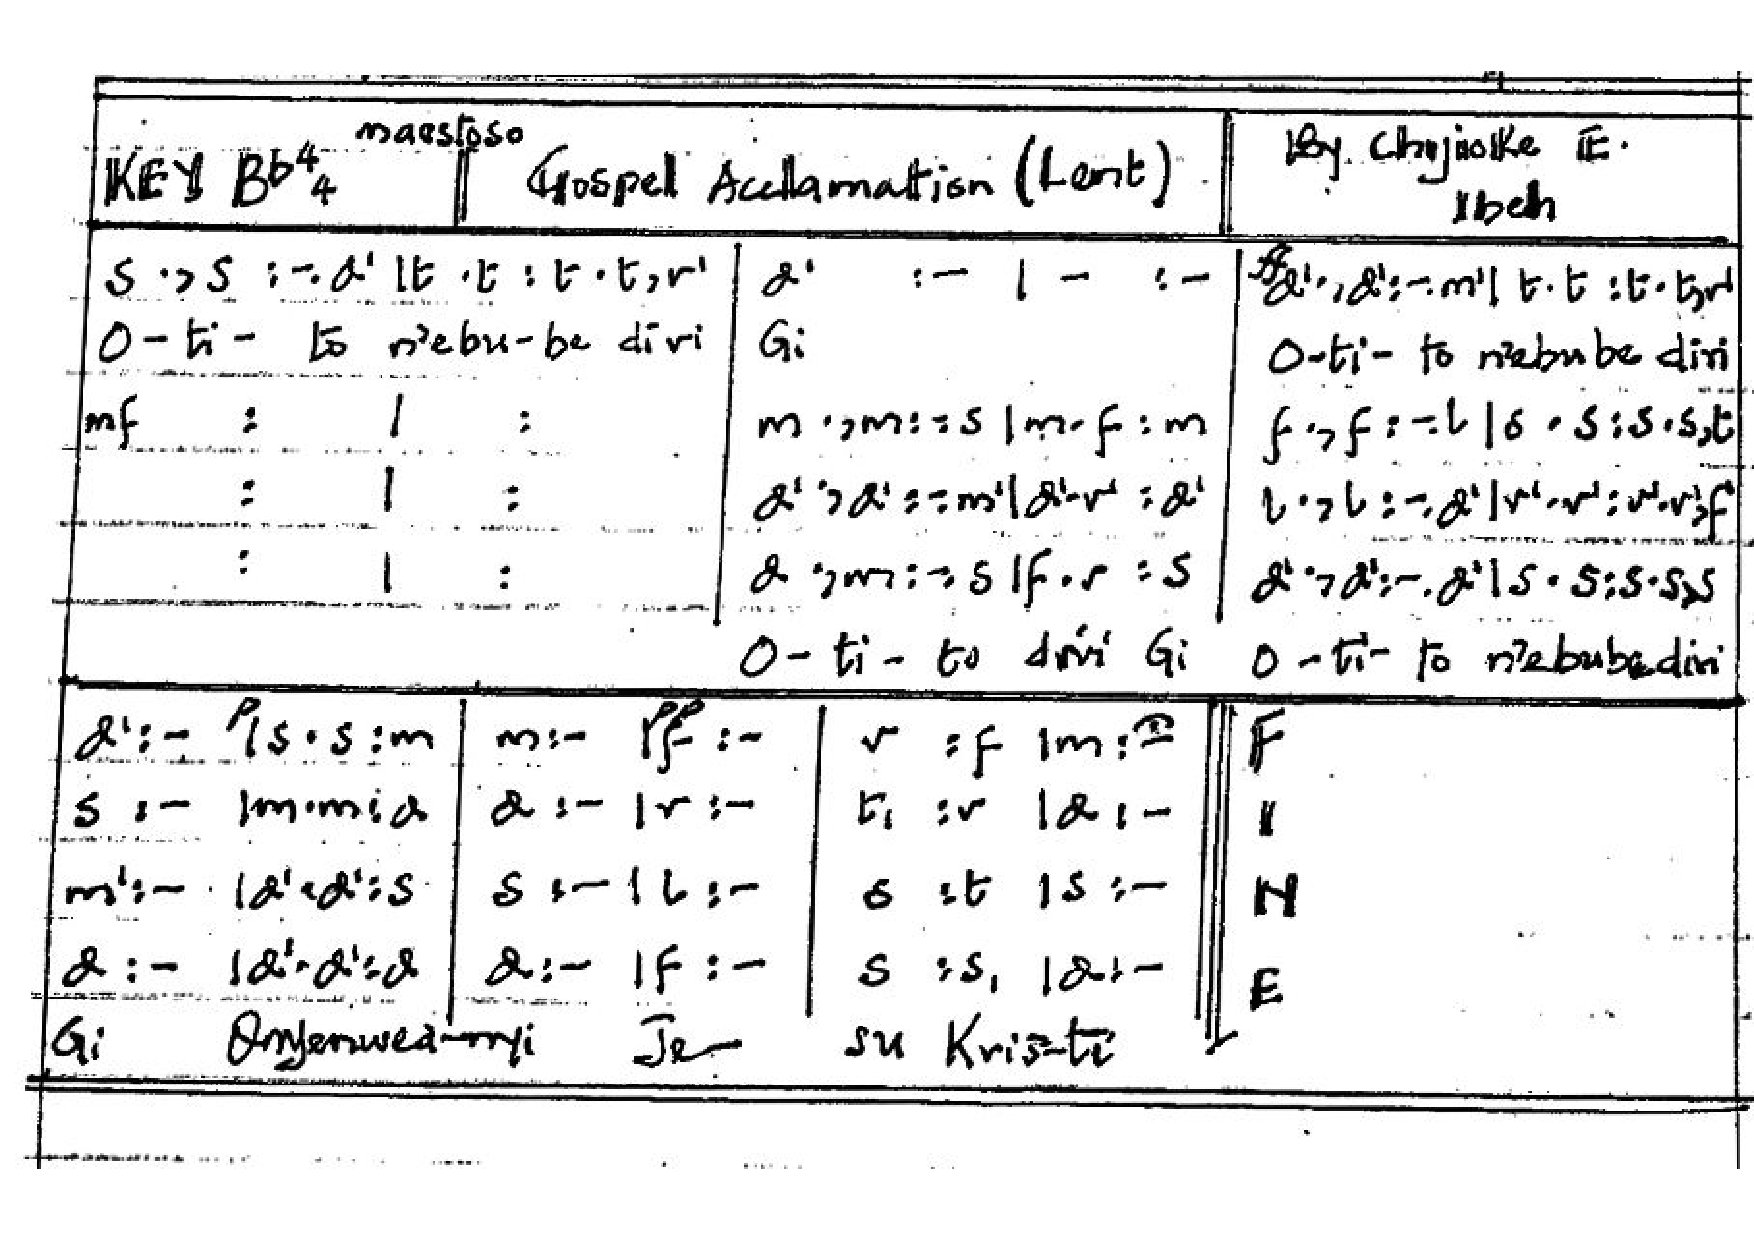 KEY Bb 4/4 maestoso || Gospel Acclamation (Lent) || By Chijioke E. Ibeh
s .,s :-.d' |t .t :t .t,r' | d' :- | - :- | d'.,d':-.m'| t.t :t.t,r'
O-ti- to n'ebu-be diri | Gi | O-ti- to n'ebube diri
mf : | : | m .,m:-.s |m.f :m | f.,f:-.l |s .s:s.s,t
: | : | d' .,d':-.m'|d'.r' :d' | l.,l:-.d'|r'.r':r'.r',f'
: | : | d .,m:-.s |f.r :s | d'.,d':-.d'|s.s:s.s,s
O-ti-to diri Gi | O-ti-to n'ebube diri
d':- p|s.s:m | m:- |pp f:- | r :f |m:- || F
s :- |m.m:d | d:- |r:- | t, :r |d:- || I
m':- |d'.d':s | s:- |l:- | s :t |s:- || N
d:- |d'.d':d | d:- |f:- | s :s, |d:- || E
Gi Onyenwea-nyi Je- su Kris-ti